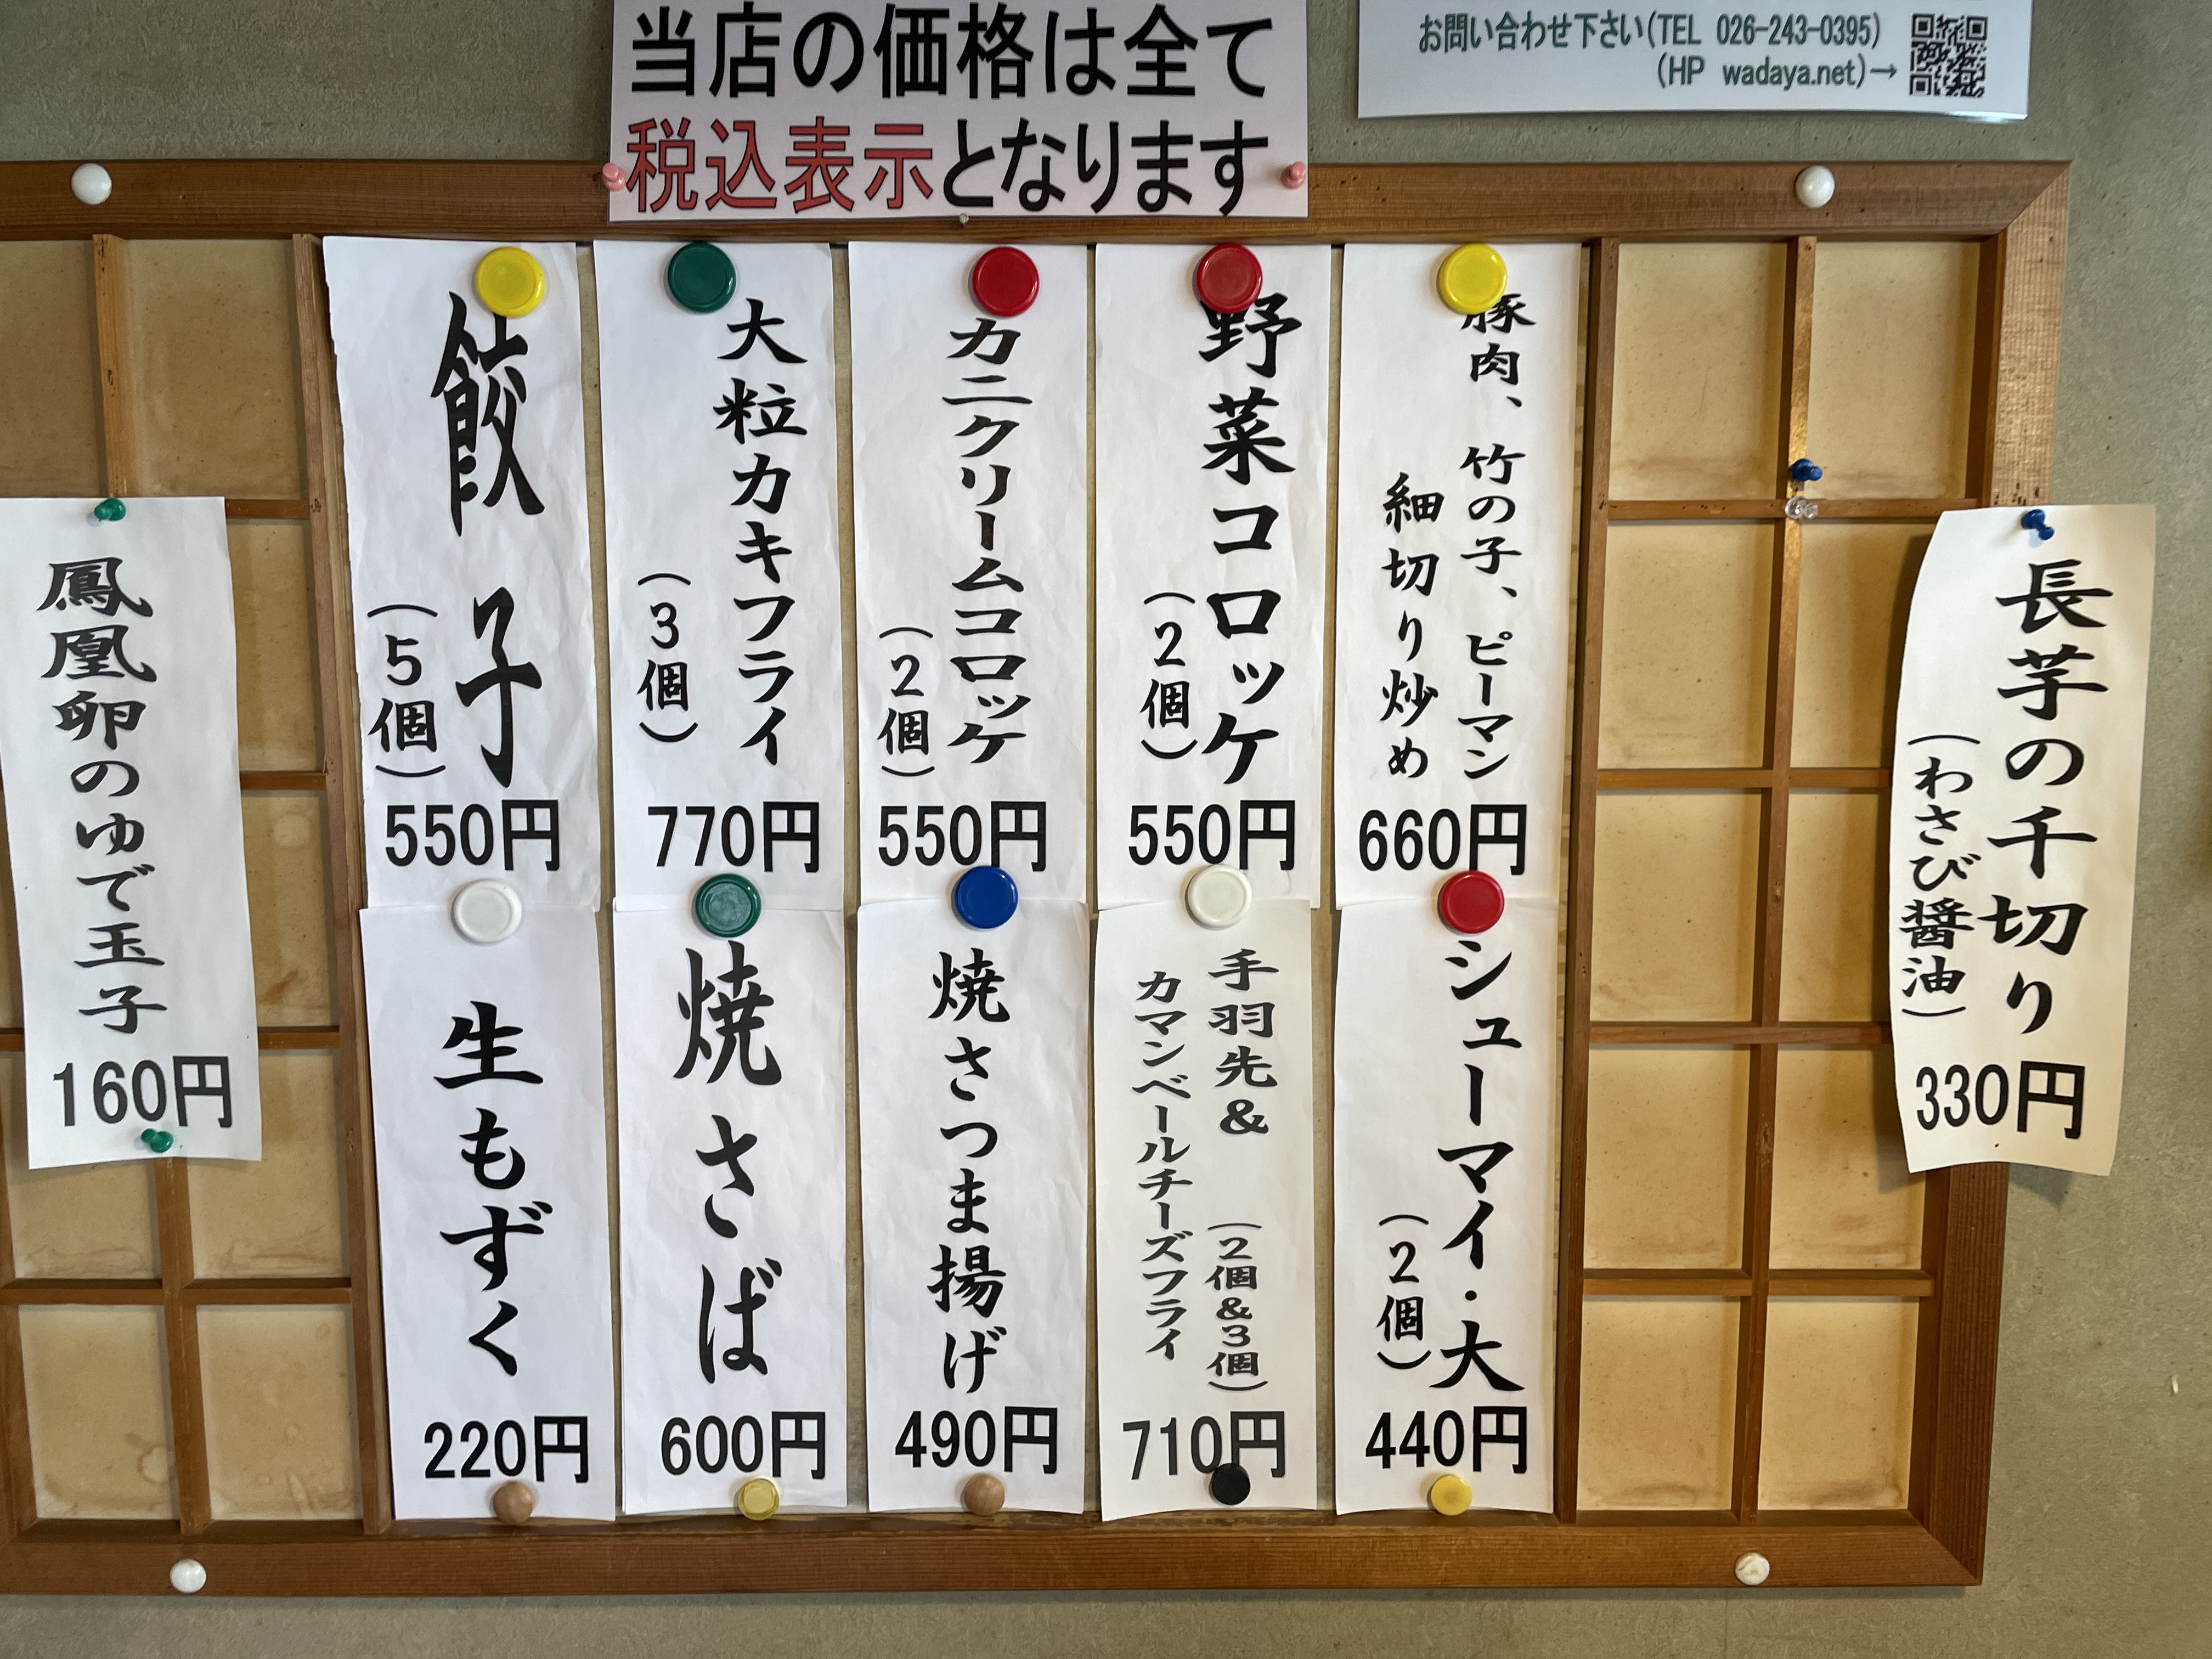 当店の価格は全て
税込表示となります
お問い合わせ下さい(TEL 026-243-0395)
(HP wadaya.net)→
豚肉、竹の子、ピーマン
細切り炒め
660円
野菜コロッケ
(2個)
550円
カニクリームコロッケ
(2個)
550円
大粒カキフライ
(3個)
770円
餃子
(5個)
550円
シューマイ・大
(2個)
440円
手羽先& (2個&3個)
カマンベールチーズフライ
710円
焼さつま揚げ
490円
焼さば
600円
生もずく
220円
長芋の千切り
(わさび醤油)
330円
鳳凰卵のゆで玉子
160円